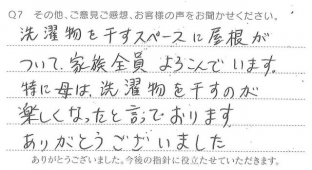 Q7 その他、ご意見ご感想、お客様の声をお聞かせください。
洗濯物を干すスペースに屋根が
ついて、家族全員 よろこんでいます。
特に母は、洗濯物を干すのが
楽しくなったと言っております
ありがとうございました
ありがとうございました。今後の指針に役立たせていただきます。